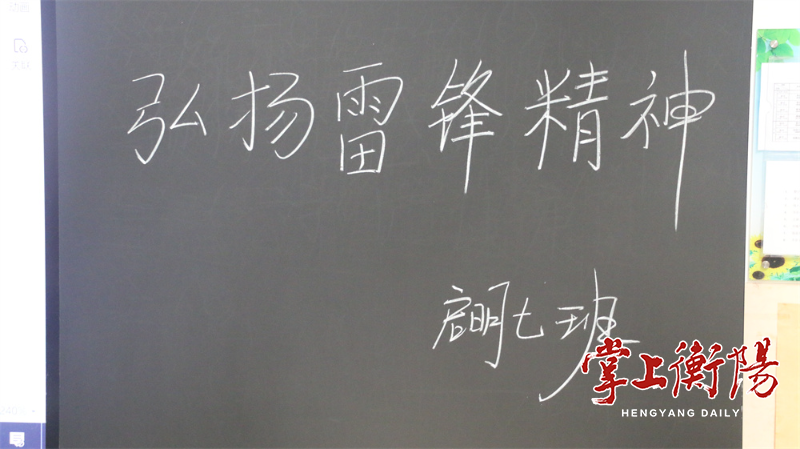 弘扬雷锋精神
启明七班
掌上衡陽
HENGYANG DAILY